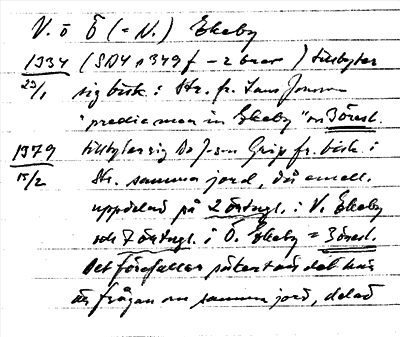 V. o Ö (= N.) Ekeby
1334 (SD4 n 349 f – 2 brev) tillbyter
29/1 sig bisk. i Str. fr. Lars Jonsson
"predia meo in Ekeby" om 3 öresl.
1379 tillbyter sig Bo J:son Grip fr. bisk. i
15/2 Str. samma jord, då emell.
uppdelad på 2 örtugl. i V. Ekeby
och 7 örtugl. i Ö. Ekeby = 3 öresl.
Det förefaller säkert att det här
är frågan om samma jord, delad